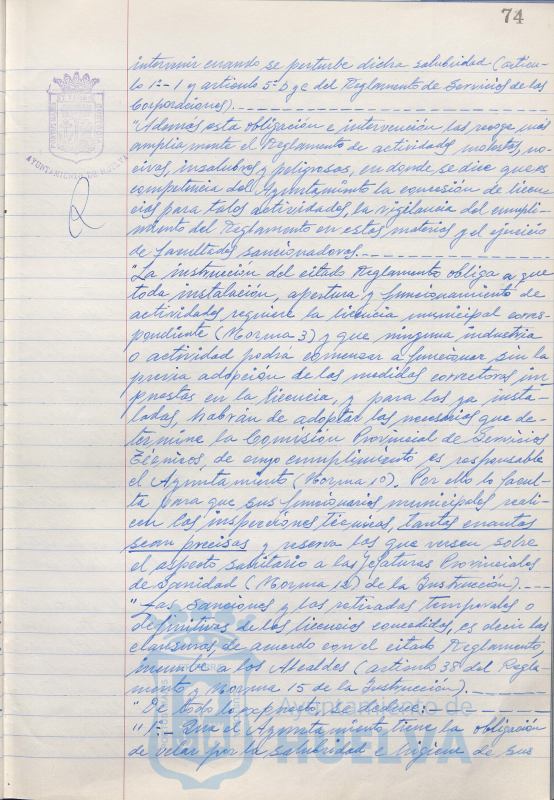 74
intervenir cuando se perturbe dicha salubridad (artícu-
lo 1º-1 y artículo 5º b y c del Reglamento de Servicios de las
Corporaciones).
"Además esta obligación e intervención las recoge más
ampliamente el Reglamento de actividades molestas, no-
civas, insalubres y peligrosas, en donde se dice que es
competencia del Ayuntamiento la concesión de licen-
cias para tales actividades, la vigilancia del cumpli-
miento del Reglamento en estas materias y el ejercicio
de facultades sancionadoras.
"La instrucción del citado Reglamento obliga a que
toda instalación, apertura y funcionamiento de
actividades requiere la licencia municipal corres-
pondiente (Norma 3) y que ninguna industria
o actividad podrá comenzar a funcionar sin la
previa adopción de las medidas correctoras im-
puestas en la licencia, y para las ya insta-
ladas, habrán de adoptar las necesarias que de-
termine la Comisión Provincial de Servicios
Técnicos, de cuyo cumplimiento es responsable
el Ayuntamiento (Norma 10). Por ello lo facul-
ta para que sus funcionarios municipales reali-
cen las inspecciones técnicas, tantas cuantas
sean precisas y reserva las que versen sobre
el aspecto sanitario a las Jefaturas Provinciales
de Sanidad (Norma 12) de la Instrucción).
"Las Sanciones y las retiradas temporales o
definitivas de las licencias concedidas, es decir las
clausuras de acuerdo con el citado Reglamento,
incumbe a los Alcaldes (artículo 38 del Regla
mento y Norma 15 de la Instrucción).
"De todo lo expuesto, se deduce:
"1º.- Que el Ayuntamiento tiene la obligación
de velar por la salubridad e higiene de sus
AYUNTAMIENTO DE HUELVA
Ayuntamiento de
HUELVA